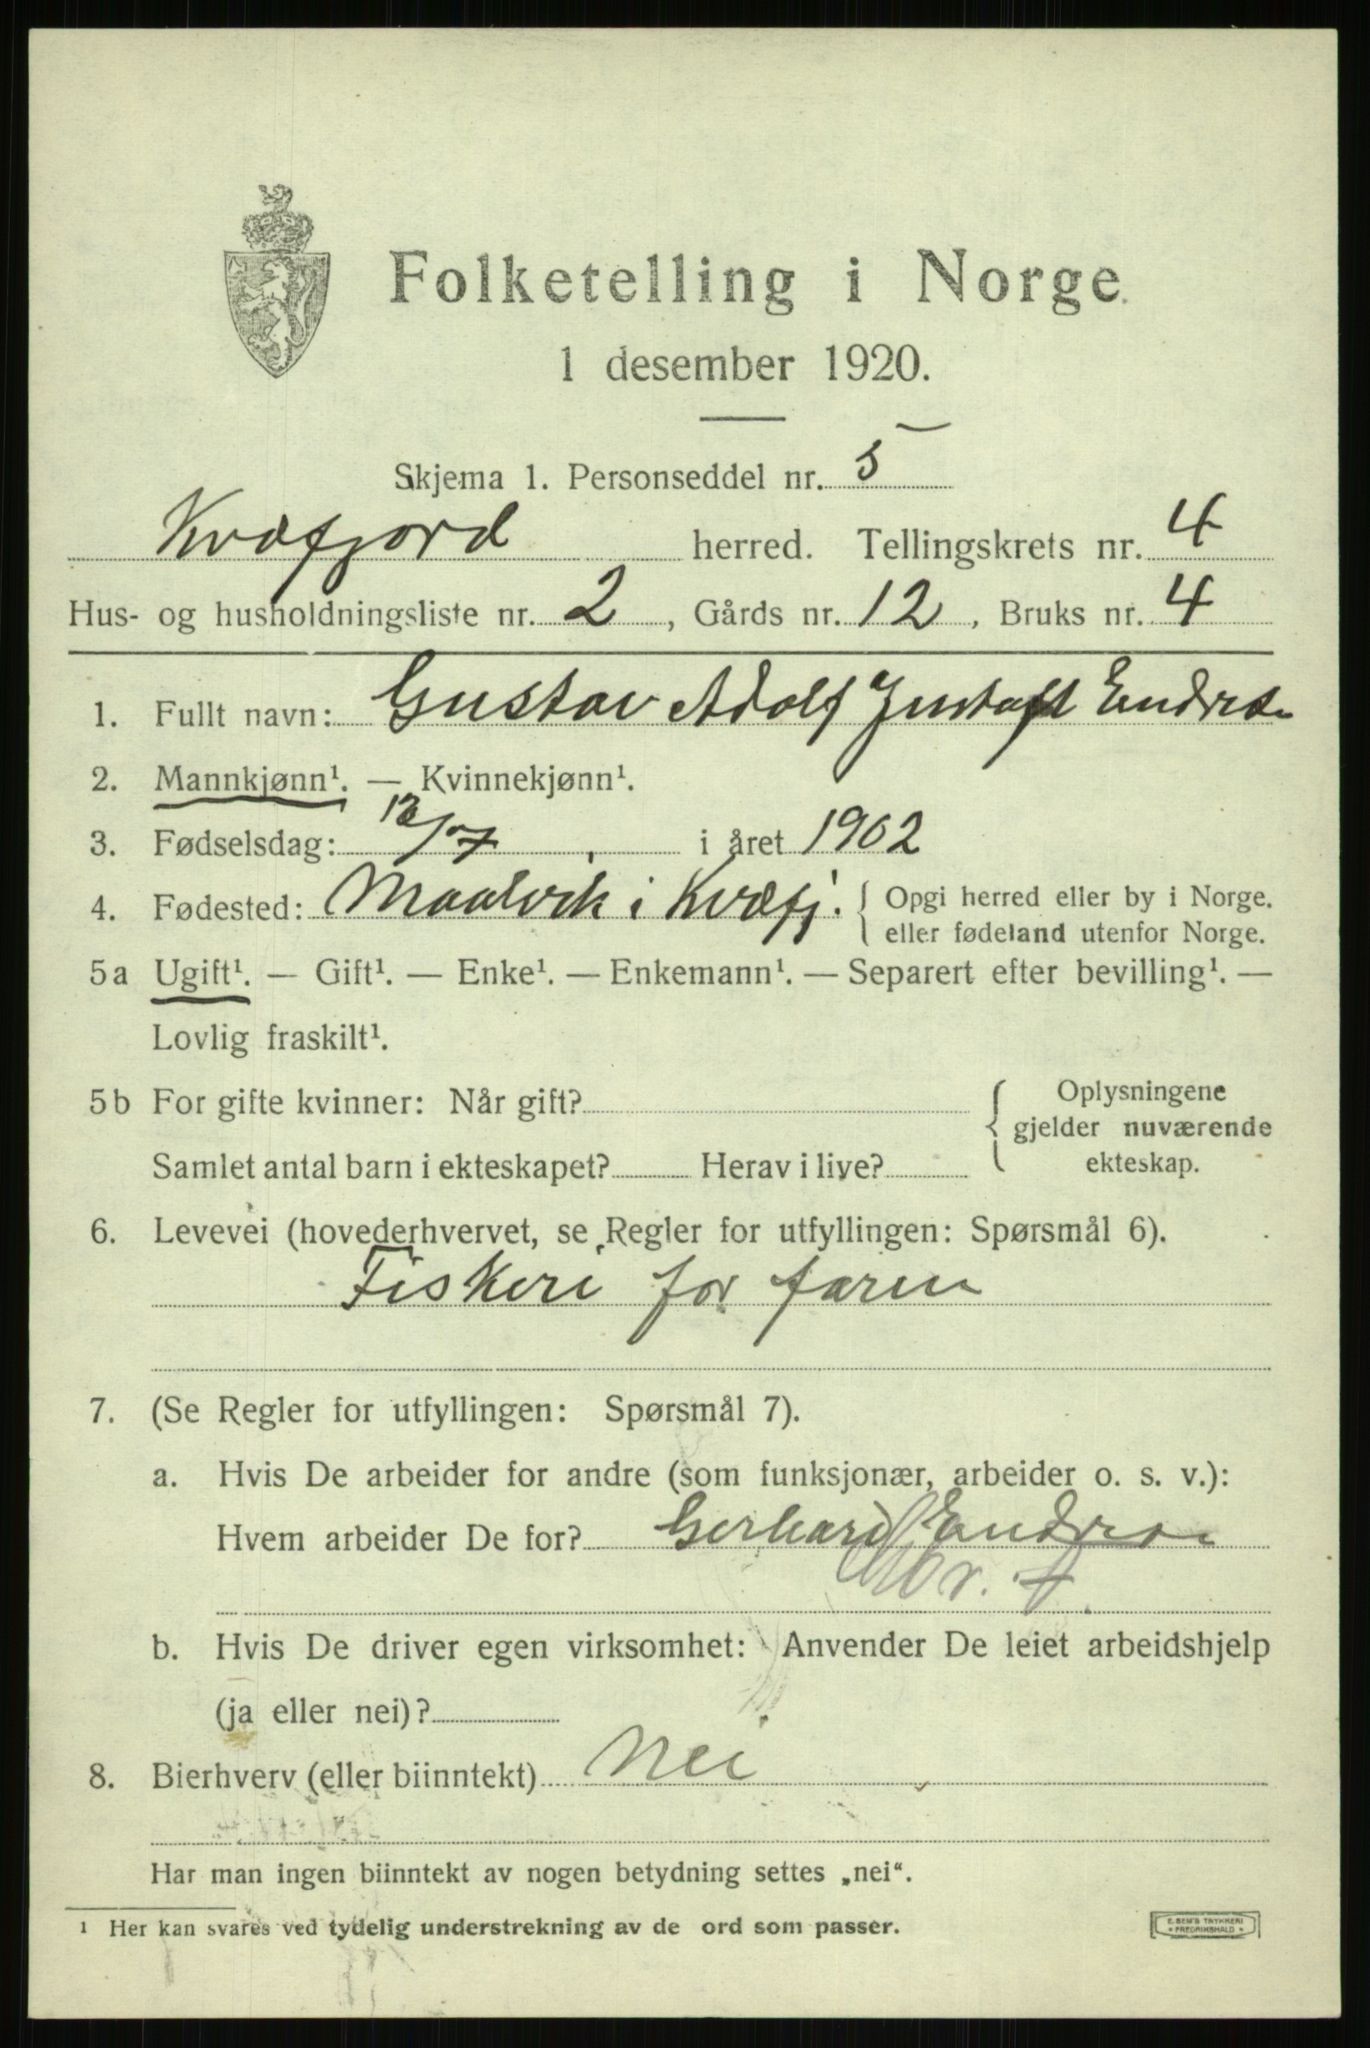 Folketelling i Norge
1 desember 1920.
Skjema 1. Personseddel nr. 5
Kvæfjord herred. Tellingskrets nr. 4
Hus- og husholdningsliste nr. 2, Gårds nr. 12, Bruks nr. 4
1. Fullt navn: Gustav Adolf Endres
2. Mannkjønn¹. — Kvinnekjønn¹.
3. Fødselsdag: /7 i året 1902
4. Fødested: i Kvæfj. { Opgi herred eller by i Norge.
eller fødeland utenfor Norge.
5a Ugift¹. — Gift¹. — Enke¹. — Enkemann¹. — Separert efter bevilling¹. —
Lovlig fraskilt¹.
5b For gifte kvinner: Når gift? { Oplysningene
gjelder nuværende
Samlet antal barn i ekteskapet? Herav i live? ekteskap.
6. Levevei (hovederhvervet, se Regler for utfyllingen: Spørsmål 6).
Fiskeri for faren
7. (Se Regler for utfyllingen: Spørsmål 7).
a. Hvis De arbeider for andre (som funksjonær, arbeider o. s. v.):
Hvem arbeider De for? Gerhard Endres
b. Hvis De driver egen virksomhet: Anvender De leiet arbeidshjelp
(ja eller nei)?
8. Bierhverv (eller biinntekt) Nei
Har man ingen biinntekt av nogen betydning settes „nei“.
¹ Her kan svares ved tydelig understrekning av de ord som passer.
E. SEM'S TRYKKERI
FREDRIKSHALD